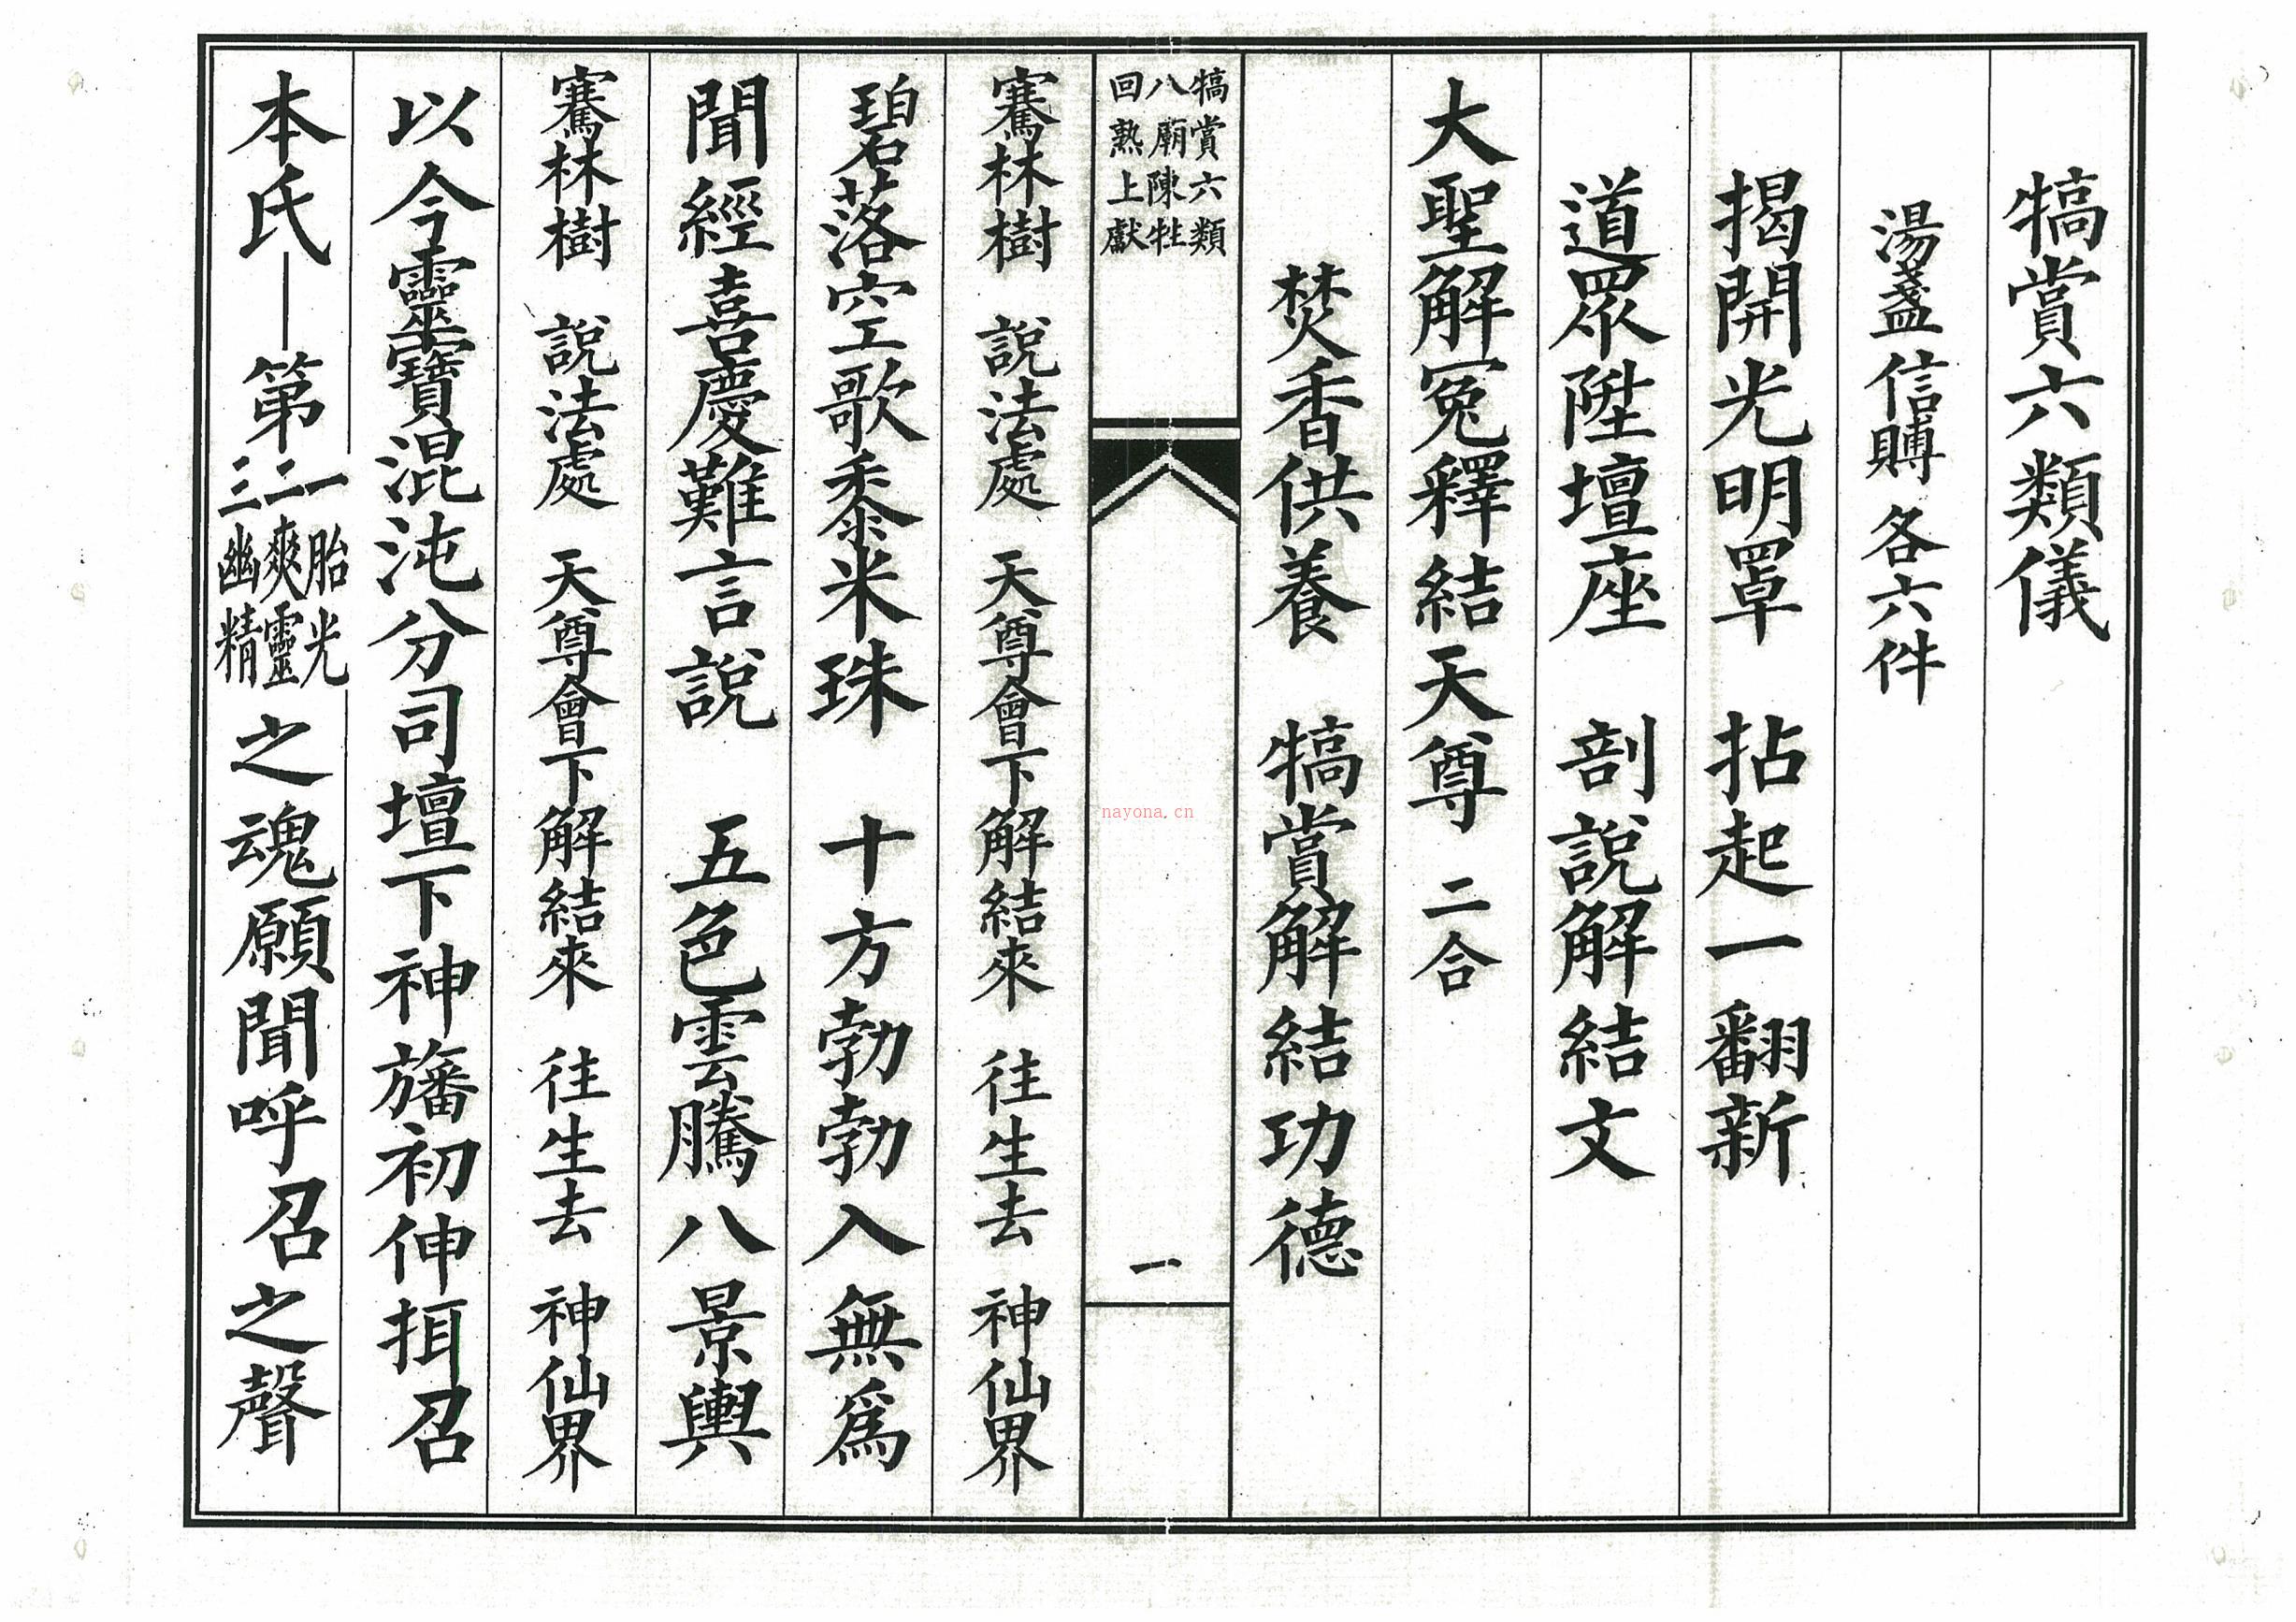 犒賞六類儀
湯盞信賻各六件
揭開光明罩　拈起一翻新
道眾陞壇座　剖說解結文
大聖解冤釋結天尊　二合
焚香供養　犒賞解結功德
犒賞六類
八廟陳牲
回熟上獻
一
騫林樹　說法處　天尊會下解結來　往生去　神仙界
碧落空歌黍米珠　十方勃勃入無為
聞經喜慶難言說　五色雲騰八景輿
騫林樹　說法處　天尊會下解結來　往生去　神仙界
以今靈寶混沌分司壇下神旛初伸挕召
本氏｜第一胎光二爽靈三幽精之魂願聞呼召之聲
nayona.cn